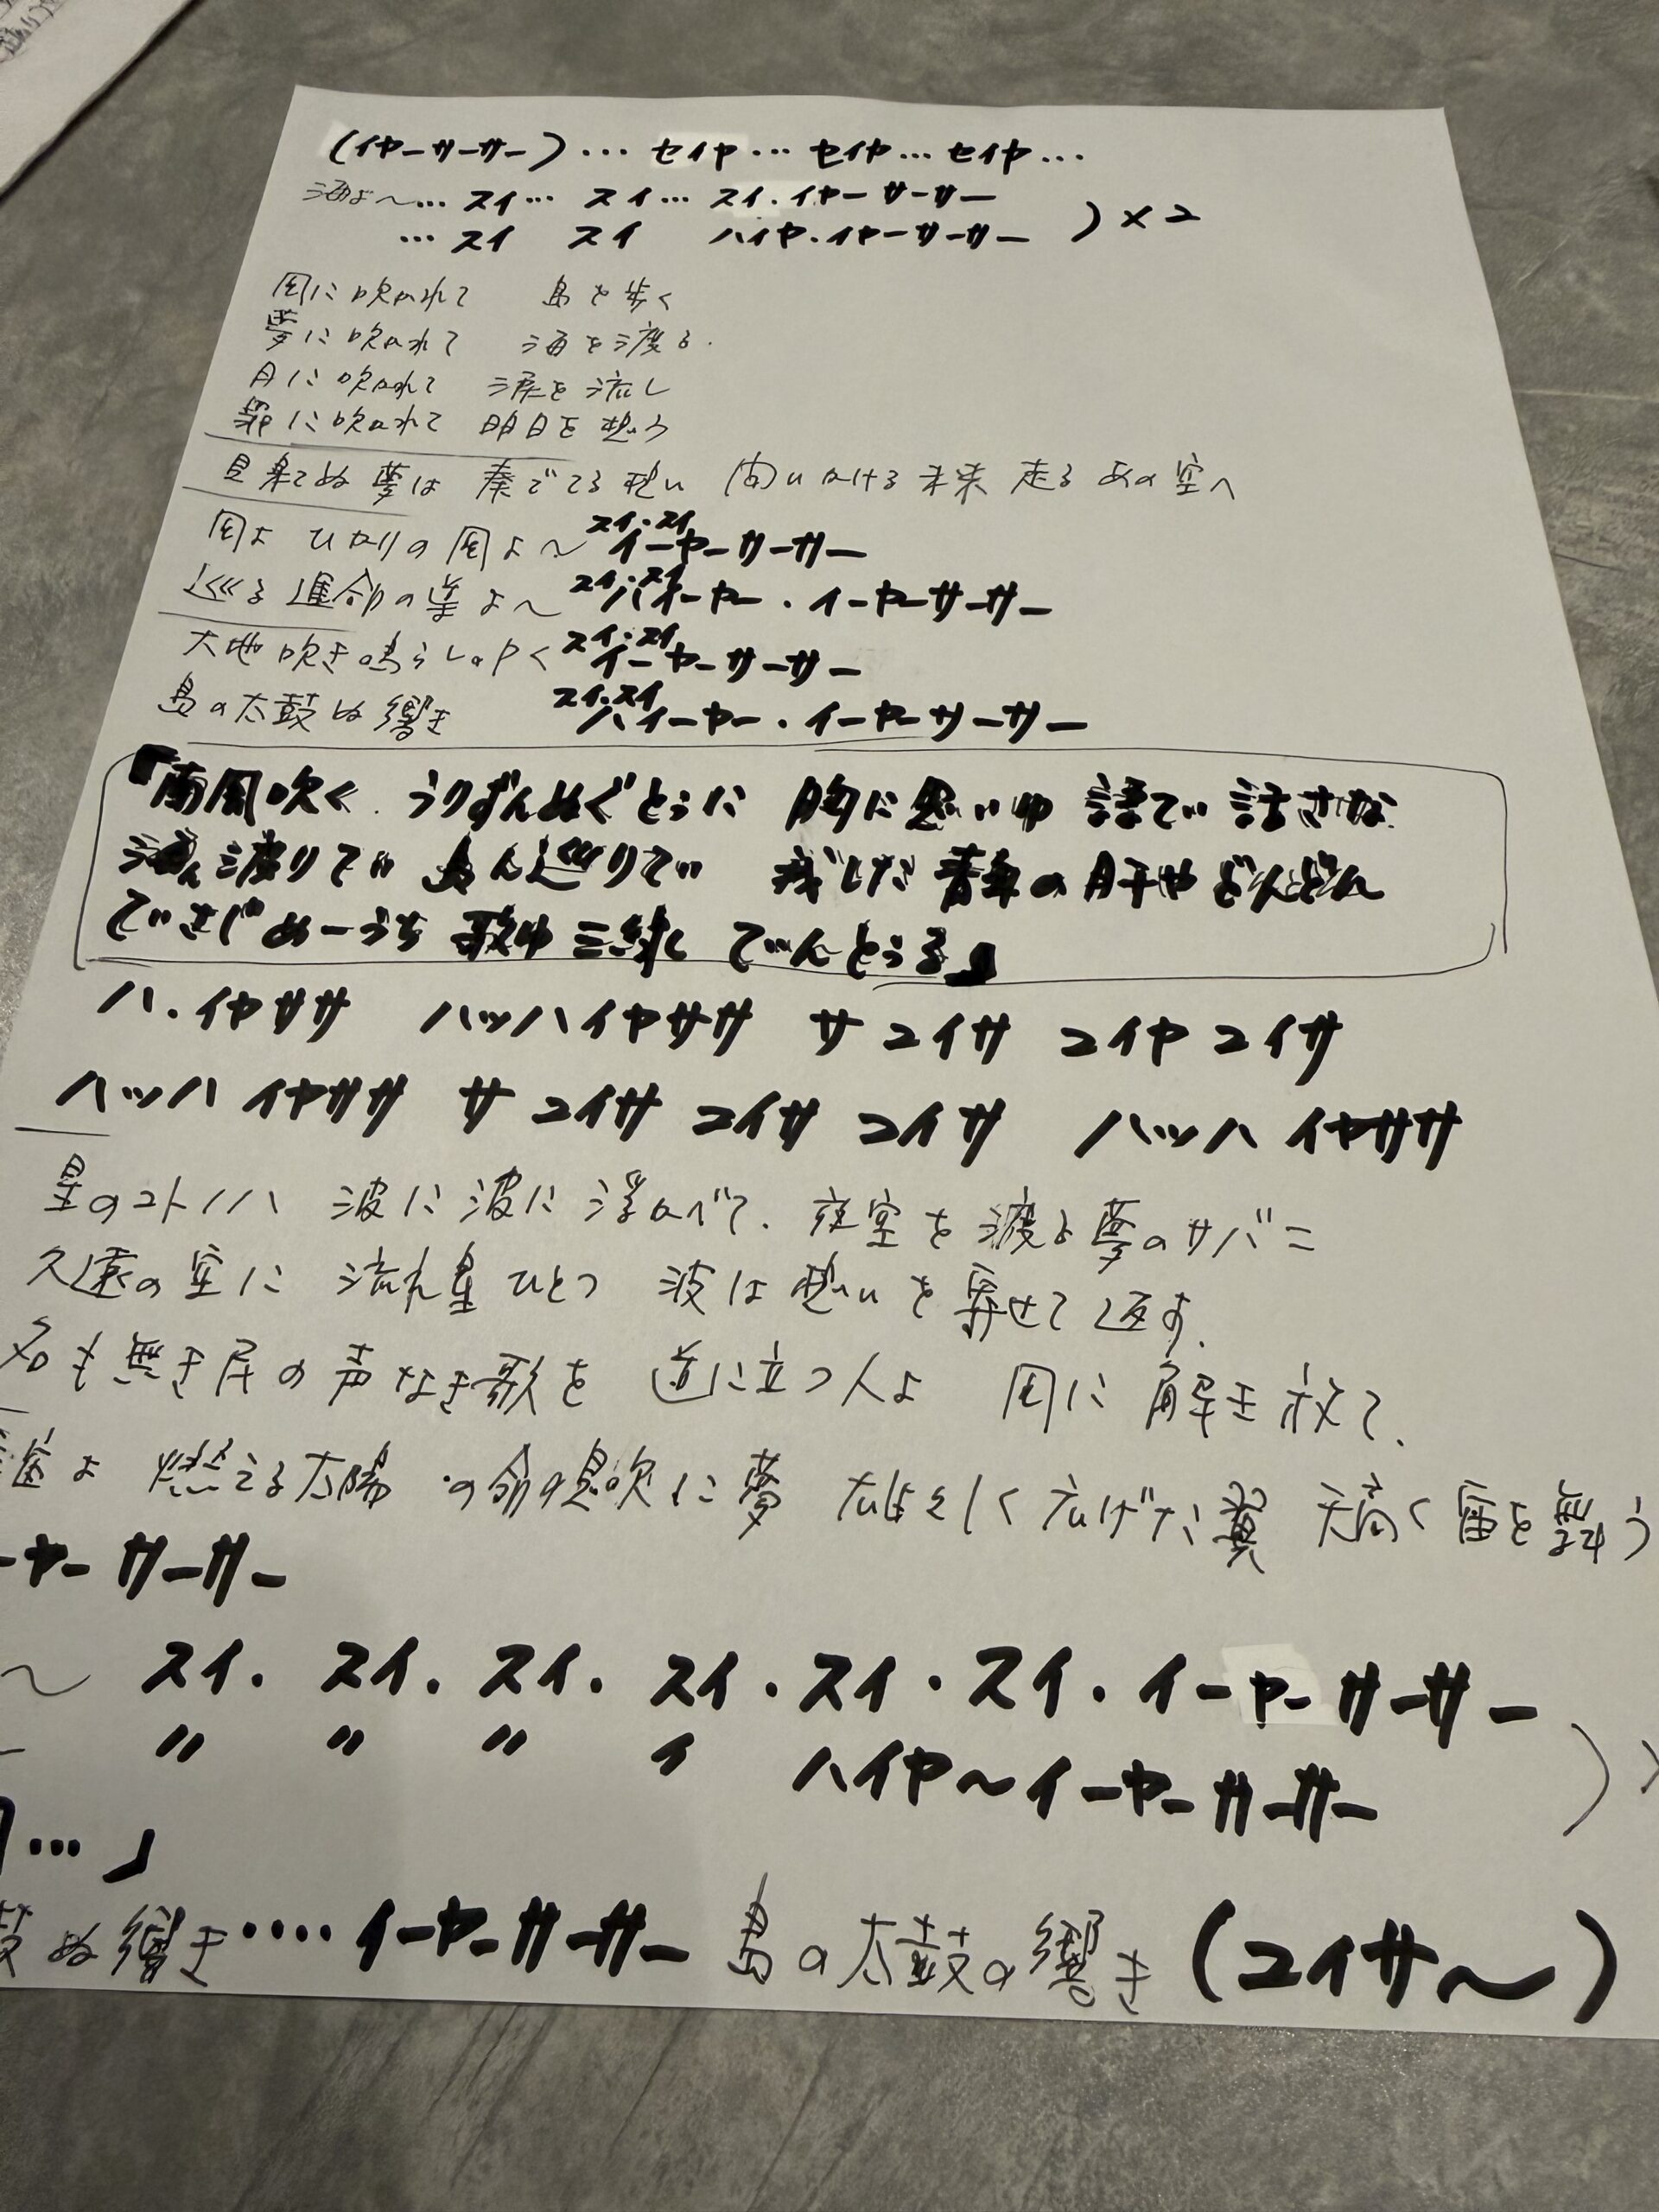 (イヤーサーサー)… セイヤ… セイヤ… セイヤ…
海よ〜… スイ… スイ… スイ・イヤーサーサー
… スイ スイ ハイヤ・イヤーサーサー ) ×2
風に吹かれて 島を歩く
夢に吹かれて 海を渡る.
月に吹かれて 涙を流し
に吹かれて 明日を想う
見果てぬ夢は 奏でてる想い 問いかける未来 走るあの空へ
風よ ひかりの風よ〜 スイ・スイ イーヤーサーサー
巡る運命の星よ〜 スイ・スイ ハイーヤー・イーヤーサーサー
大地吹き鳴らしゆく スイ・スイ イーヤーサーサー
島の太鼓ぬ響き スイ・スイ ハイーヤー・イーヤーサーサー
「南風吹く うりずんぬぐとぅに 胸に思いゆ 語てぃ 話さな
海ん渡りてぃ 島ん巡りてぃ 青年の肝やどんどん
てぃさじめーうち 歌ゆ三線し でぃんとぅる」
ハ・イヤササ ハッハイヤササ サ ユイサ ユイヤ ユイサ
ハッハ イヤササ サ ユイサ ユイサ ユイサ ハッハ イヤササ
星のコトノハ 波に波に浮かべて. 夜空を渡る夢のサバニ
久遠の空に 流れ星ひとつ 波は想いを寄せて返す.
名も無き民の声なき歌を 道に立つ人よ 風に解き放て.
よ 燃える太陽の命の息吹に夢 雄々しく広げた翼 天高く宙を舞う
ーヤーサーサー
〜 スイ. スイ. スイ. スイ・スイ・スイ・イーヤーサーサー
〃 〃 〃 〃 ハイヤ〜イーヤーサーサー )
…」
鼓ぬ響き‥‥ イーヤーサーサー 島の太鼓の響き (ユイサ〜)